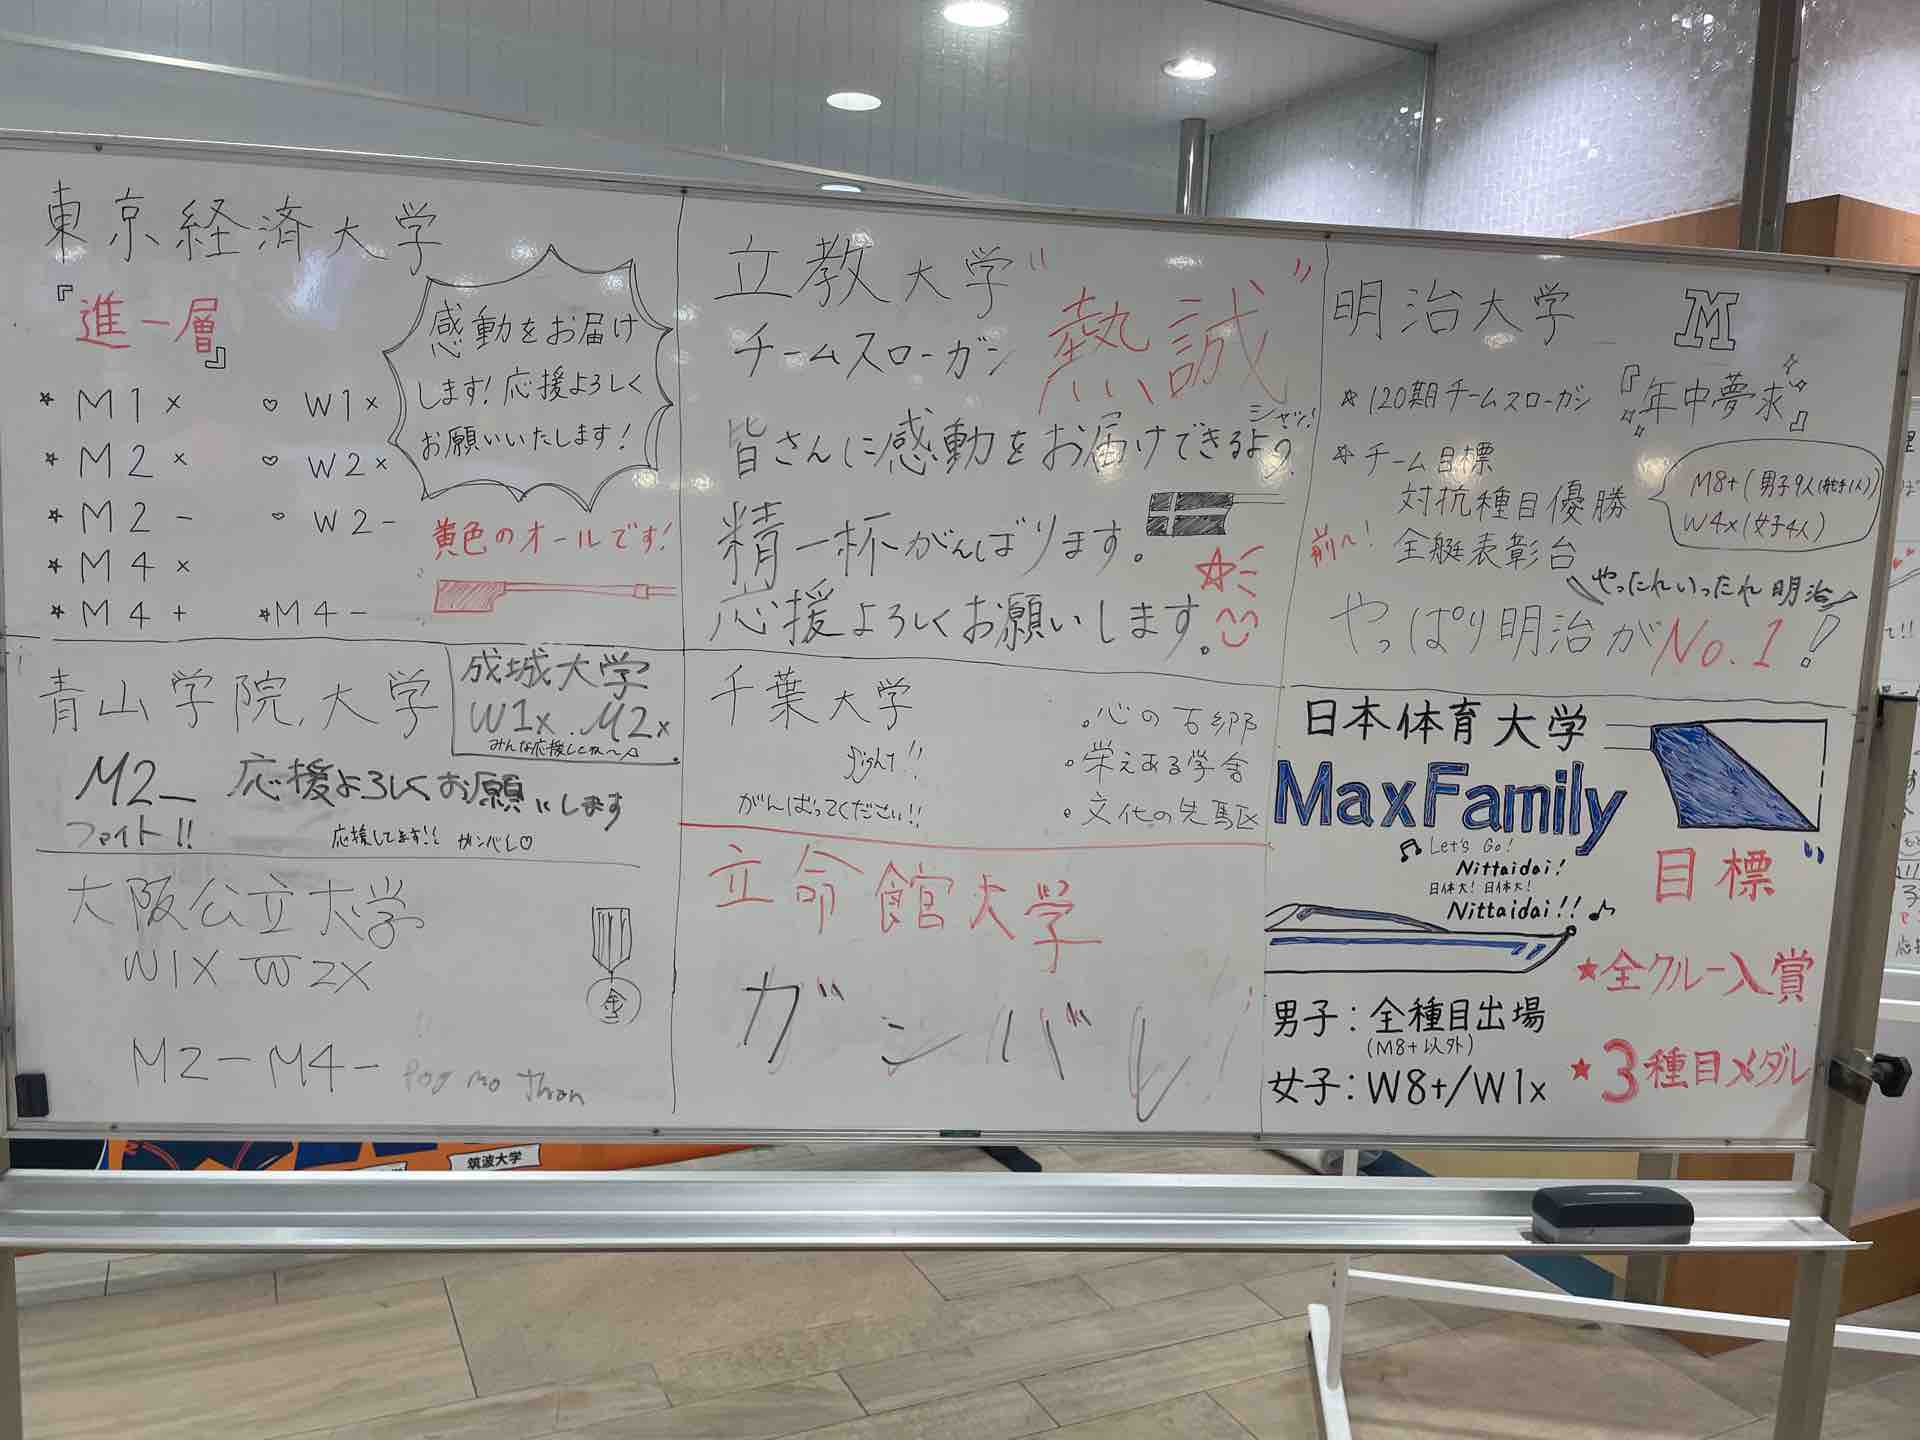 東京経済大学
『進一層』
感動をお届け
します！応援よろしく
お願いいたします！
☆ M1x ♡ W1x
☆ M2x ♡ W2x
☆ M2- ♡ W2-
☆ M4x
☆ M4+ ☆M4-
黄色のオールです！
立教大学
チームスローガン
"熱誠"
皆さんに感動をお届けできるよう
精一杯がんばります。
応援よろしくお願いします。
明治大学
M
☆120期チームスローガン
『年中夢求』
☆チーム目標
対抗種目優勝
M8+(男子9人(舵手1人))
W4x(女子4人)
前へ！
全艇表彰台
やったれいったれ 明治
やっぱり明治がNo.1！
青山学院大学
M2-
応援よろしくお願いします
ファイト!!
応援してます!! ガンバレ♡
成城大学
W1x.M2x
みんな応援してね〜
千葉大学
fight!!
がんばってください!!
。心の古郷
。栄えある学舎
・文化の先駆
日本体育大学
MaxFamily
♫ Let's Go!
Nittaidai!
日体大！日体大！
Nittaidai!!♪
目標
★全クルー入賞
★3種目メダル
男子：全種目出場
(M8+以外)
女子：W8+/W1x
大阪公立大学
W1X W2X
金
M2-M4-
立命館大学
ガンバレ!
筑波大学